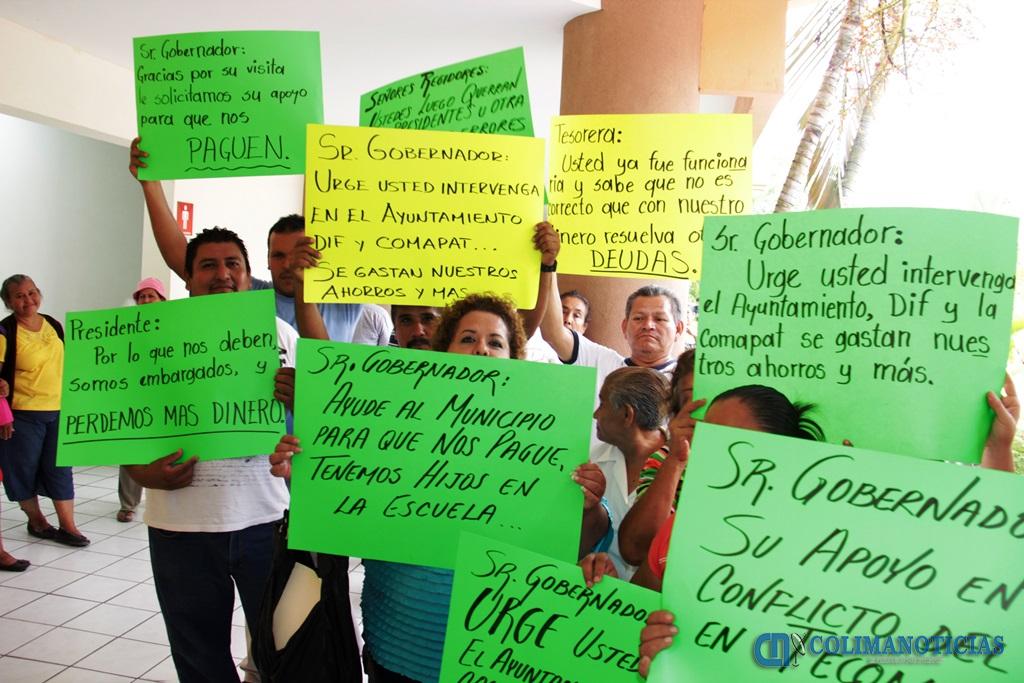 Sr. Gobernador:
Gracias por su visita
le solicitamos su apoyo
para que nos
PAGUEN.
SEÑORES REGIDORES:
USTEDES LUEGO QUERRAN
PRESIDENTES U OTRA
ERRORES
SR. GOBERNADOR:
URGE USTED INTERVENGA
EN EL AYUNTAMIENTO
DIF Y COMAPAT...
SE GASTAN NUESTROS
AHORROS Y MAS
Tesorera:
Usted ya fue funciona
ria y sabe que no es
correcto que con nuestro
dinero resuelva
DEUDAS.
Sr. Gobernador:
Urge usted intervenga
el Ayuntamiento, Dif y la
Comapat se gastan nues
tros ahorros y más.
Presidente:
Por lo que nos deben,
somos embargados, y
PERDEMOS MAS DINERO.
SR. GOBERNADOR:
AYUDE AL MUNICIPIO
PARA QUE NOS PAGUE,
TENEMOS HIJOS EN
LA ESCUELA...
SR. GOBERNADO
SU APOYO EN
CONFLICTO DEL
EN TECOM
SR. GOBERNADO
URGE USTED
EL AYUNTA
COLIMANOTICIAS